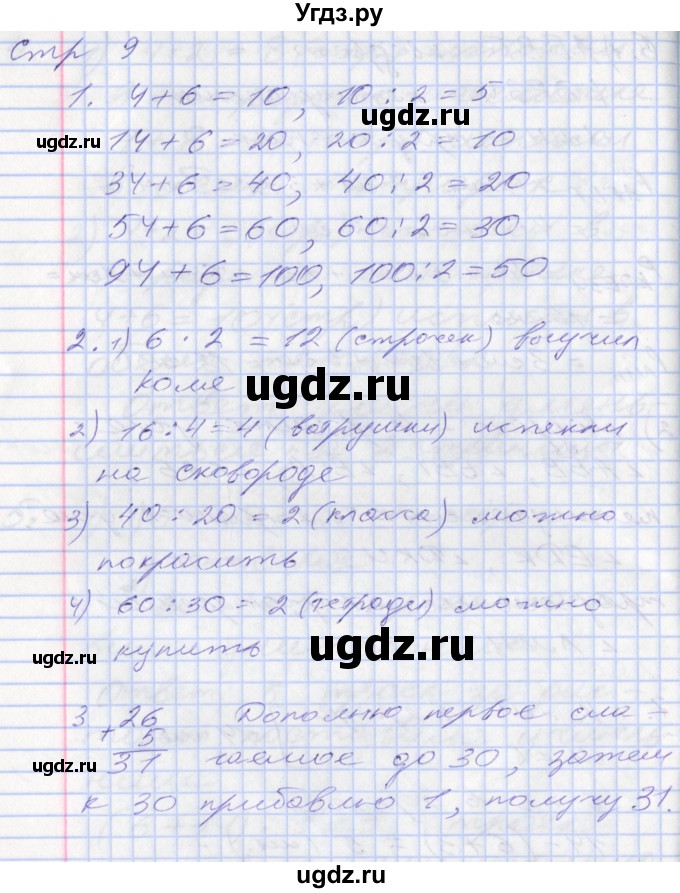 Угдз.ру
Стр 9
1. 4+6=10, 10:2=5
ugdz.ru
ugdz.ru 14+6=20, 20:2=10
34+6=40, 40:2=20
54+6=60, 60:2=30
94+6=100, 100:2=50
2. 1) 6·2=12 (строчек) выучил
Коля ugdz.ru
2) 16:4=4 (ватрушки) испекли
на сковороде
3) 40:20=2 (класса) можно
покрасить
4) 60:30=2 (тетради) можно
ugdz.ru купить ugdz.ru
3 26 Дополню первое сла-
+ 5
ugdz.ru 31 гаемое до 30, затем
к 30 прибавлю 1, получу 31.